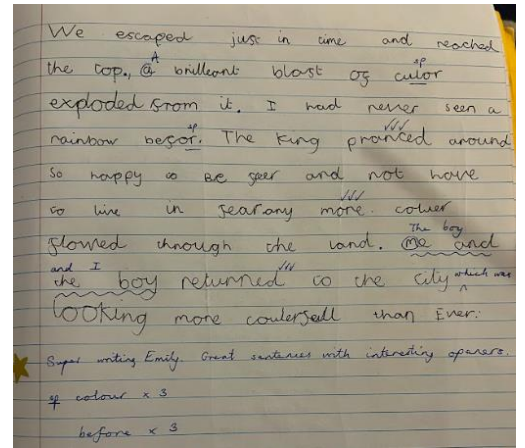 We escaped just in time and reached
the top., @ A brilleant blast of culor sp
exploded from it. I had never seen a
rainbow befor. sp The King pranced around
so happy to Be seer and not have
to live in fear any more. coluer
flowed through the land. The boy me and
and I the boy returned to the city which was
looking more coulerfull than Ever.
Super writing Emily. Great sentences with interesting openers.
sp colour x 3
before x 3